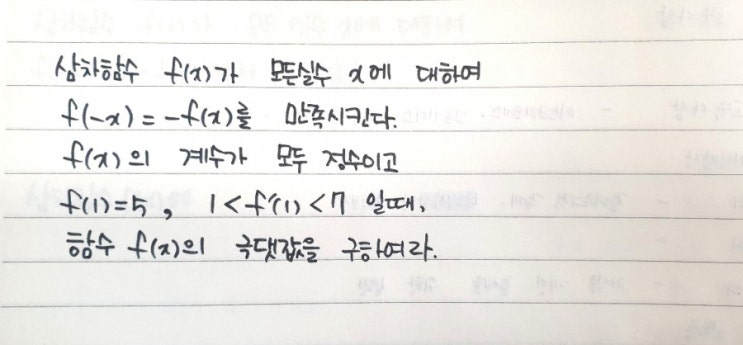 삼차함수 f(x)가 모든실수 x에 대하여
f(-x) = -f(x)를 만족시킨다.
f(x)의 계수가 모두 정수이고
f(1)=5, 1<f'(1)<7 일때,
함수 f(x)의 극댓값을 구하여라.